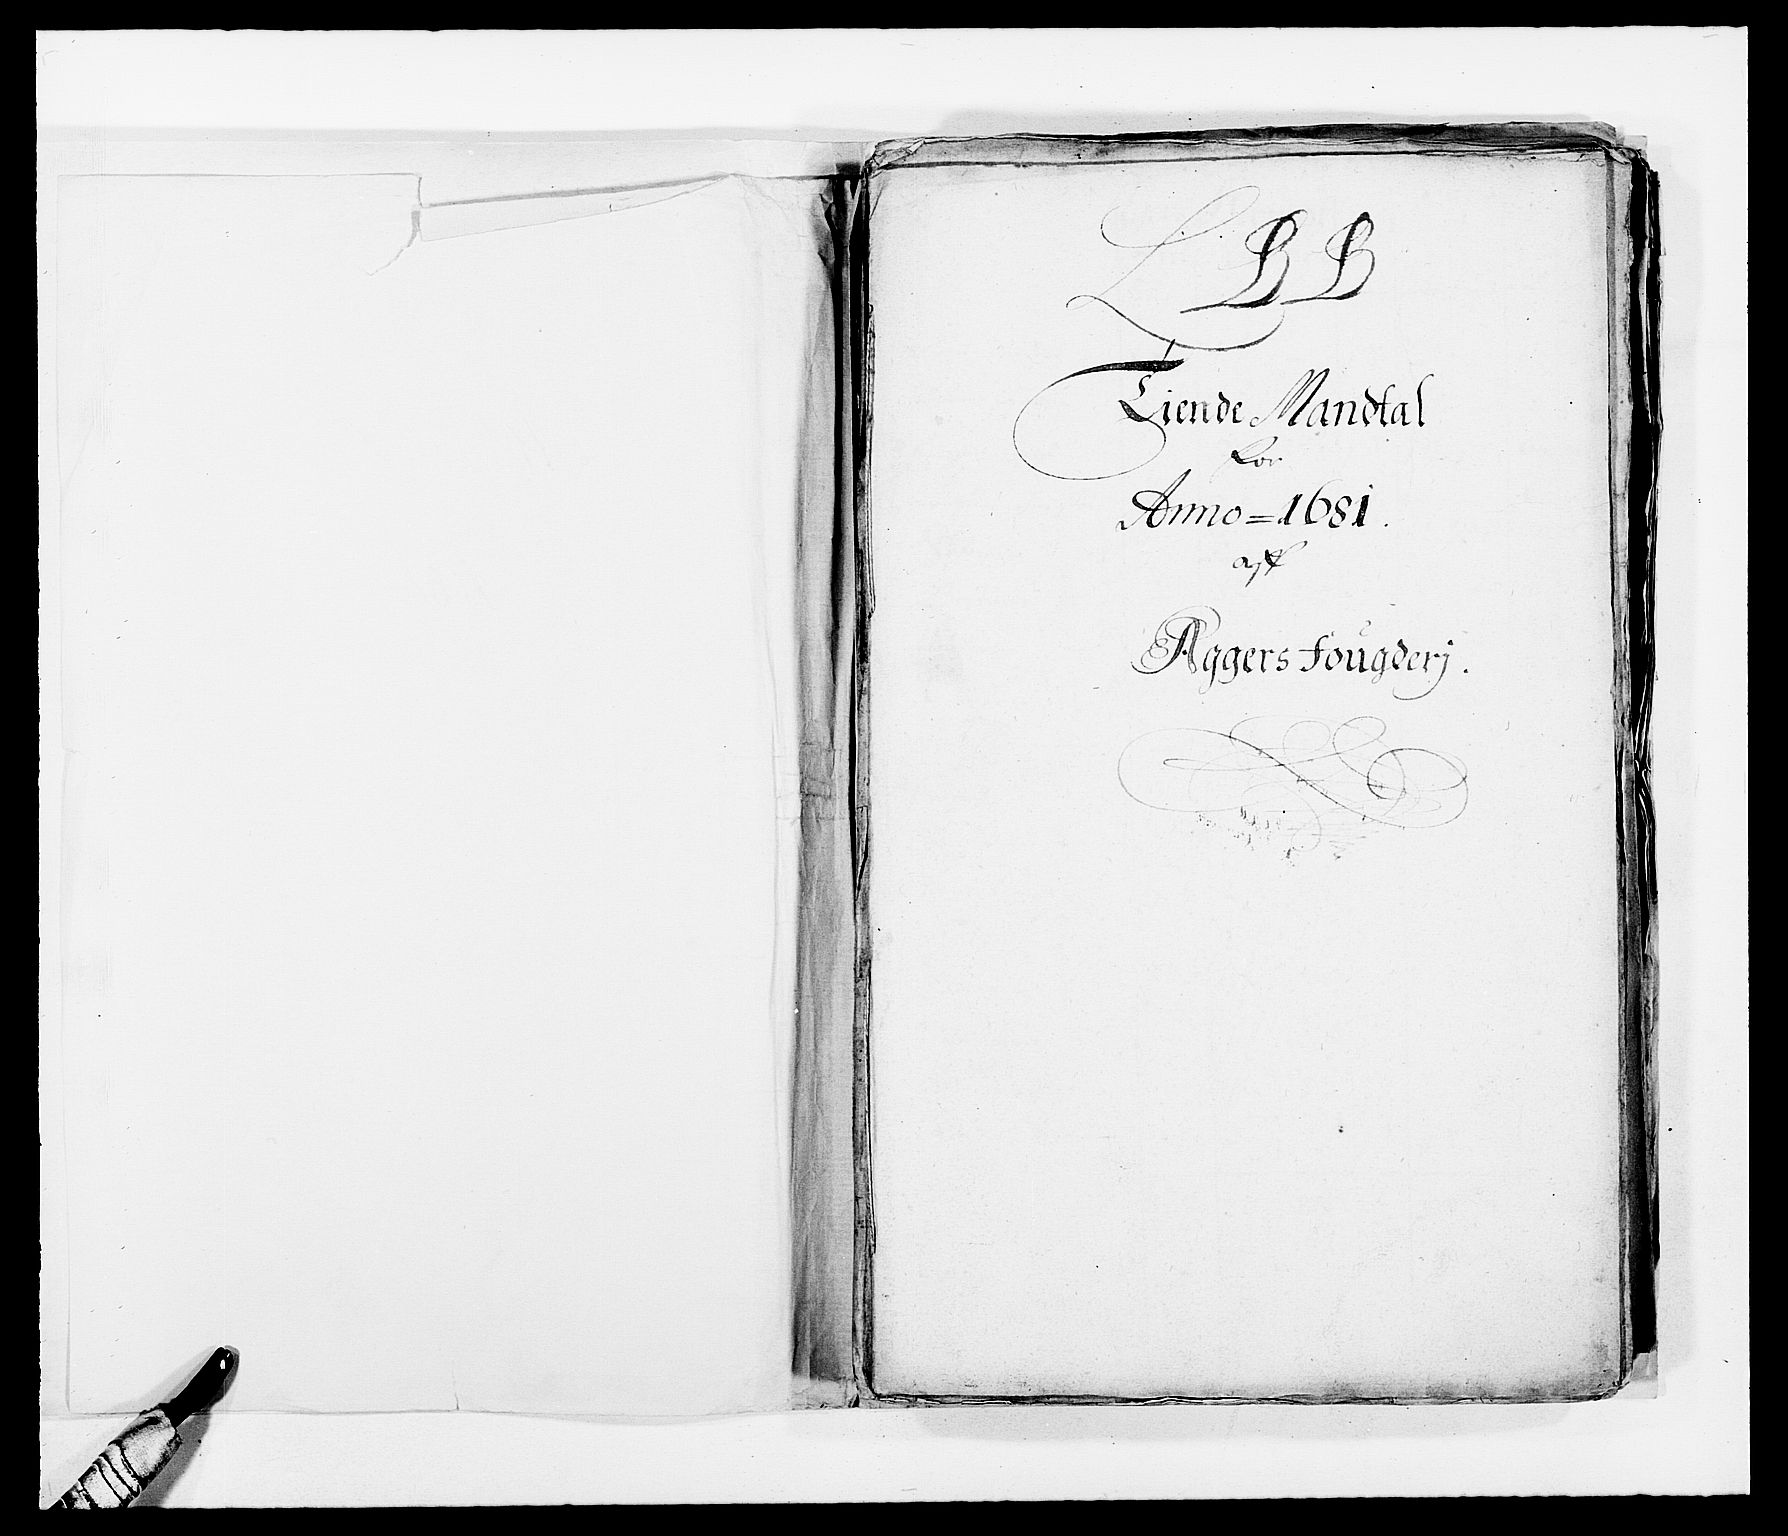 L B B
Tiende Mandtal
for
Anno = 1681.
aff
Aggers fougderj.